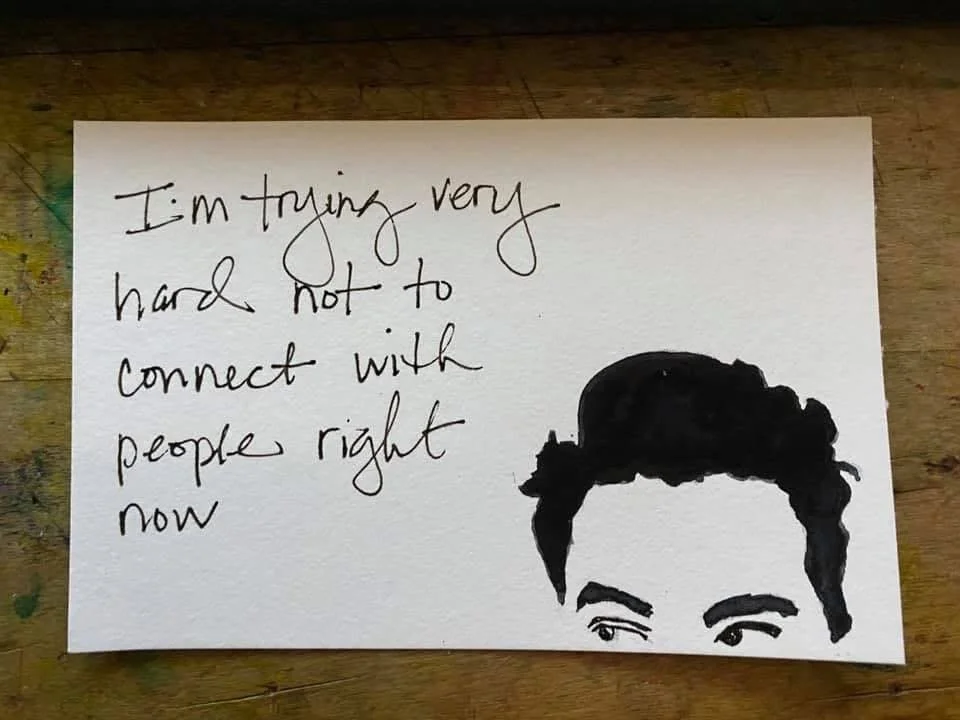 I'm trying very
hard not to
connect with
people right
now